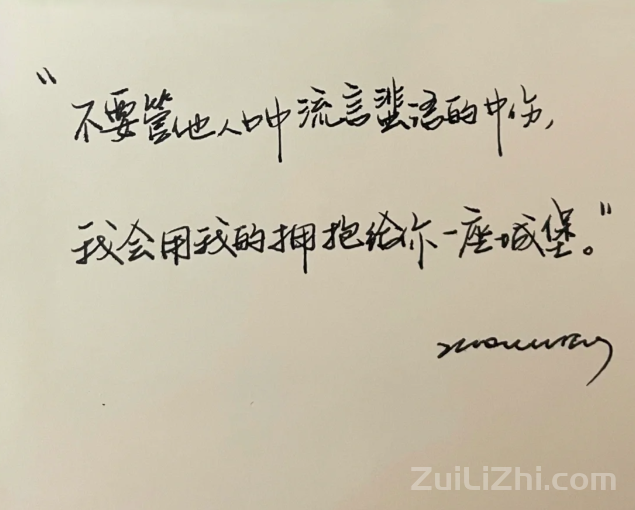 “不要管他人口中流言蜚语的中伤,
我会用我的拥抱给你一座城堡。”
ZuiLiZhi.com